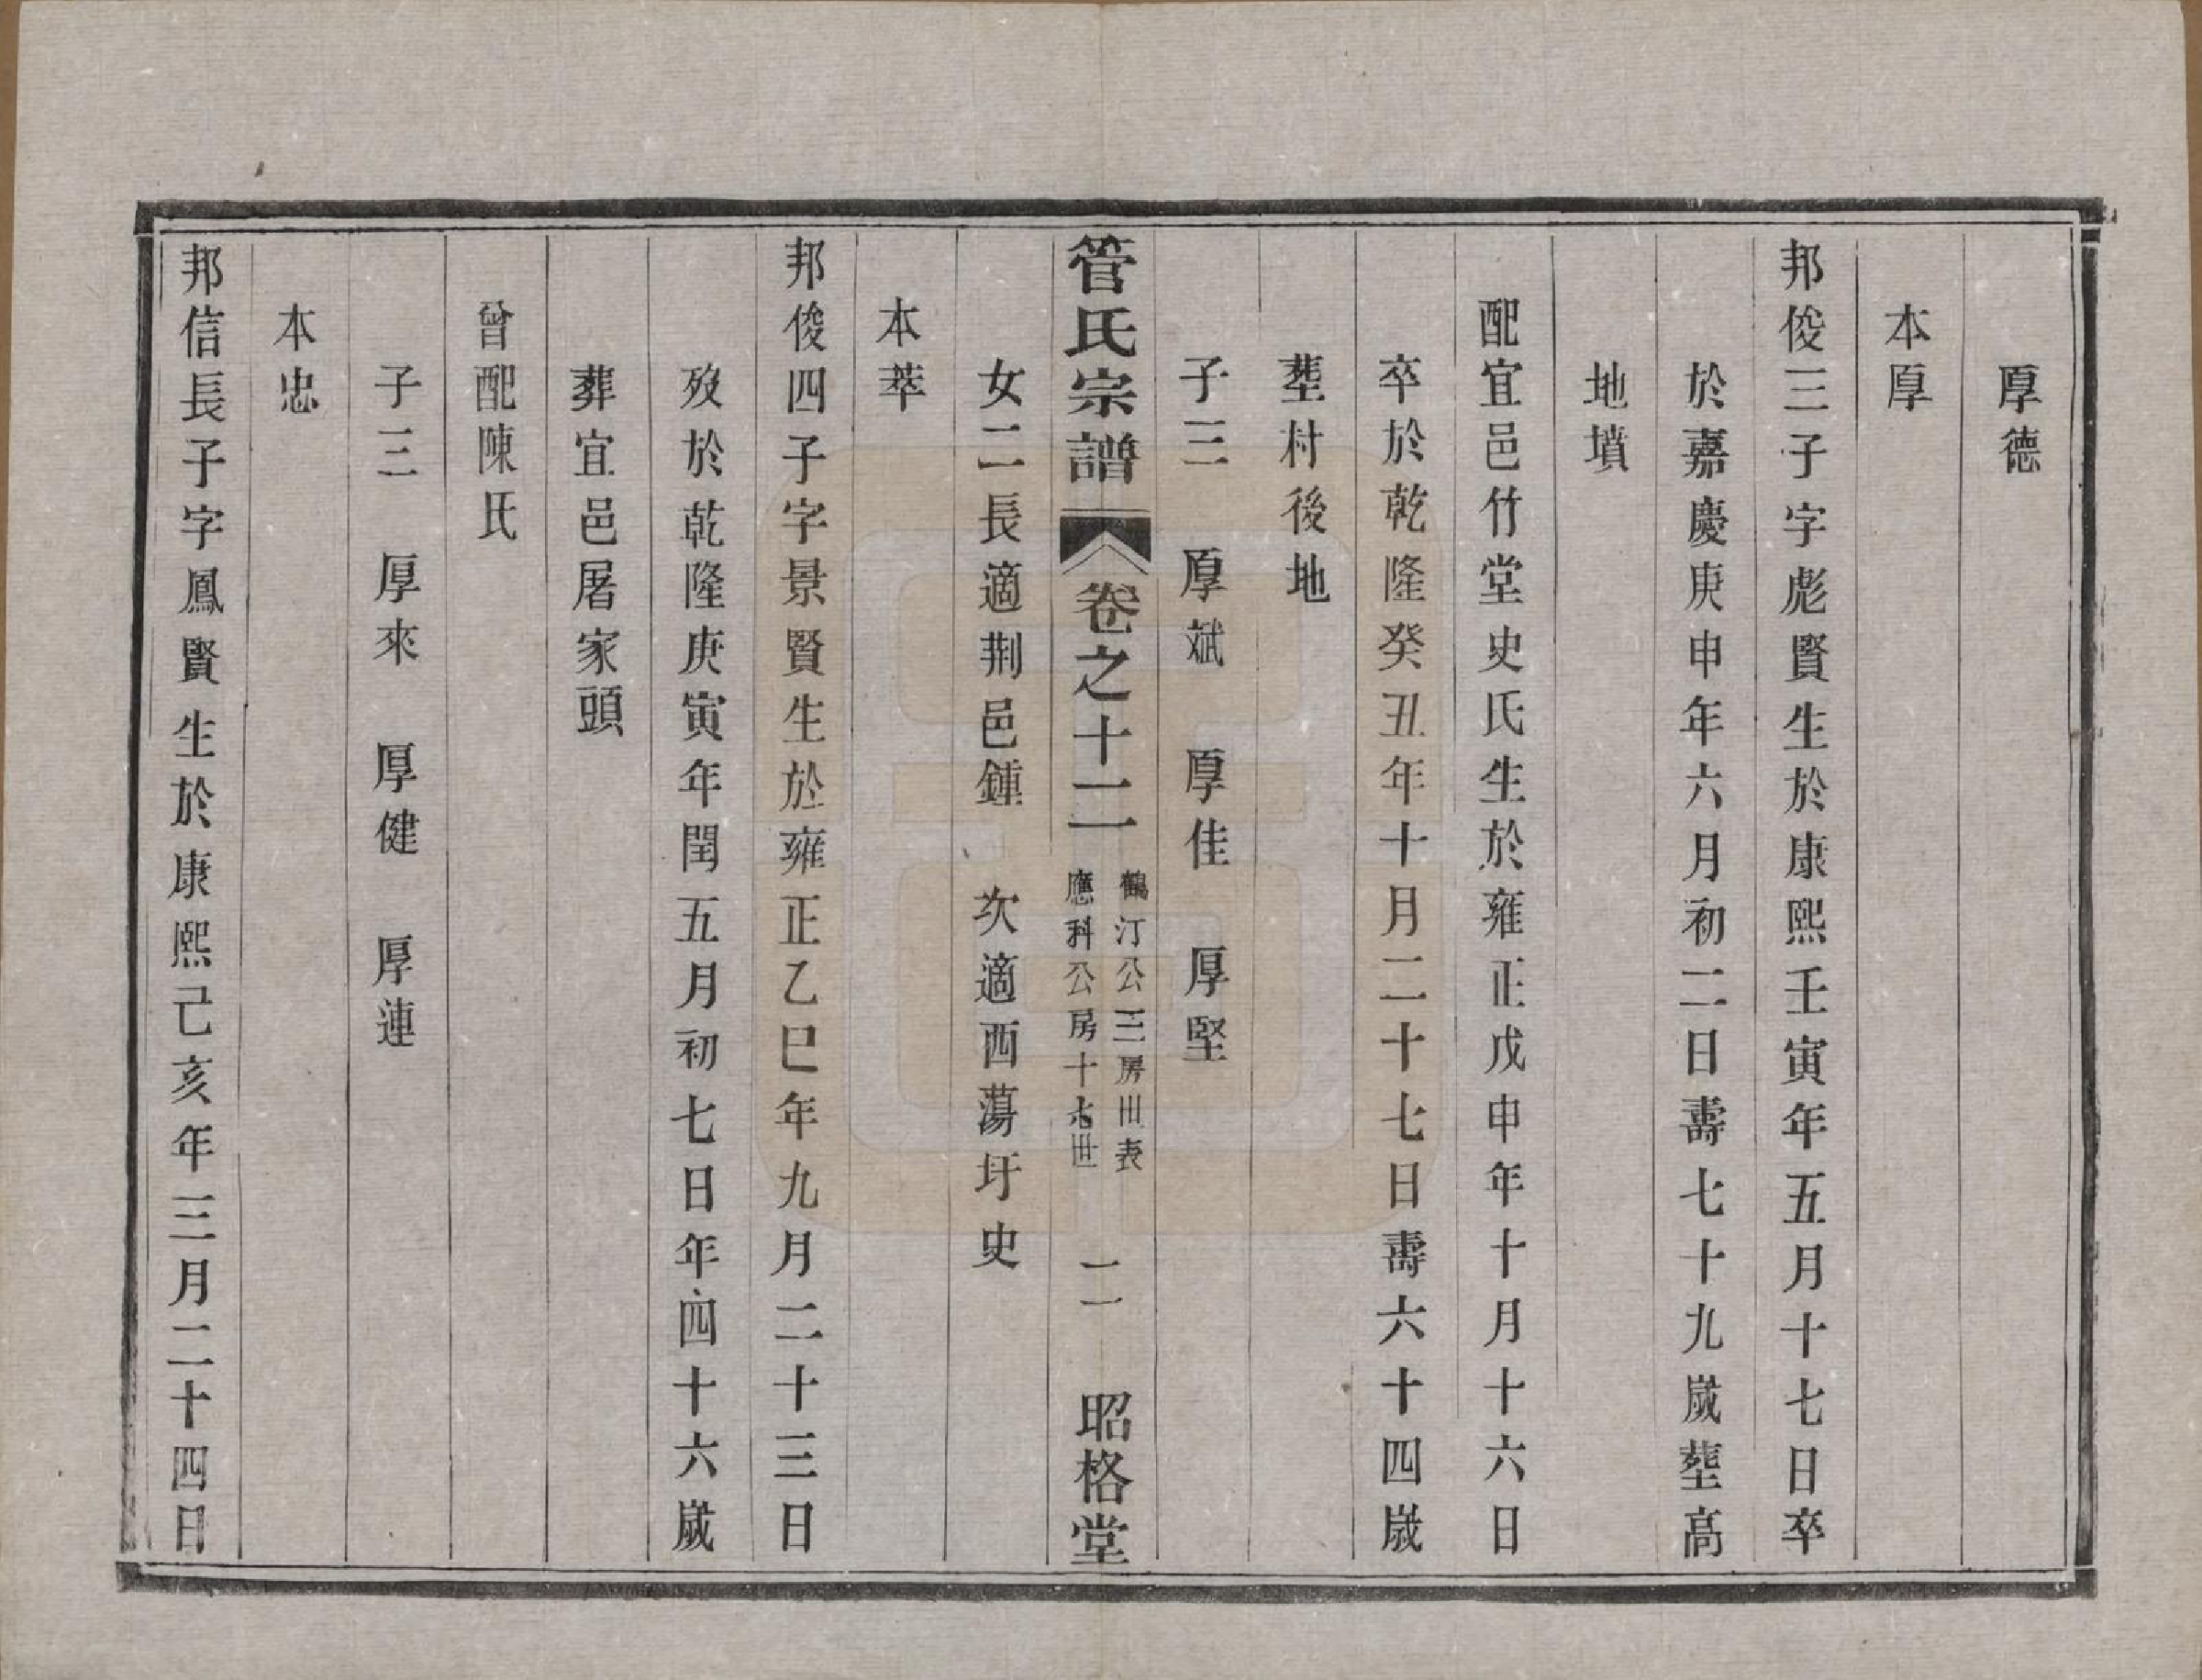 厚德
本厚
邦俊三子字彪賢生於康熙壬寅年五月十七日卒
於嘉慶庚申年六月初二日壽七十九歲塟高
地墳
配宜邑竹堂史氏生於雍正戊申年十月十六日
卒於乾隆癸丑年十月二十七日壽六十四歲
塟村後地
子三　厚斌　厚佳　厚堅
管氏宗譜　卷之十二　鶴汀公三房世表　應科公房十七世　二　昭格堂
女二長適荆邑鍾　次適西蕩圩史
本萃
邦俊四子字景賢生於雍正乙巳年九月二十三日
歿於乾隆庚寅年閏五月初七日年四十六歲
葬宜邑屠家頭
曾配陳氏
子三　厚來　厚健　厚連
本忠
邦信長子字鳳賢生於康熙己亥年三月二十四日